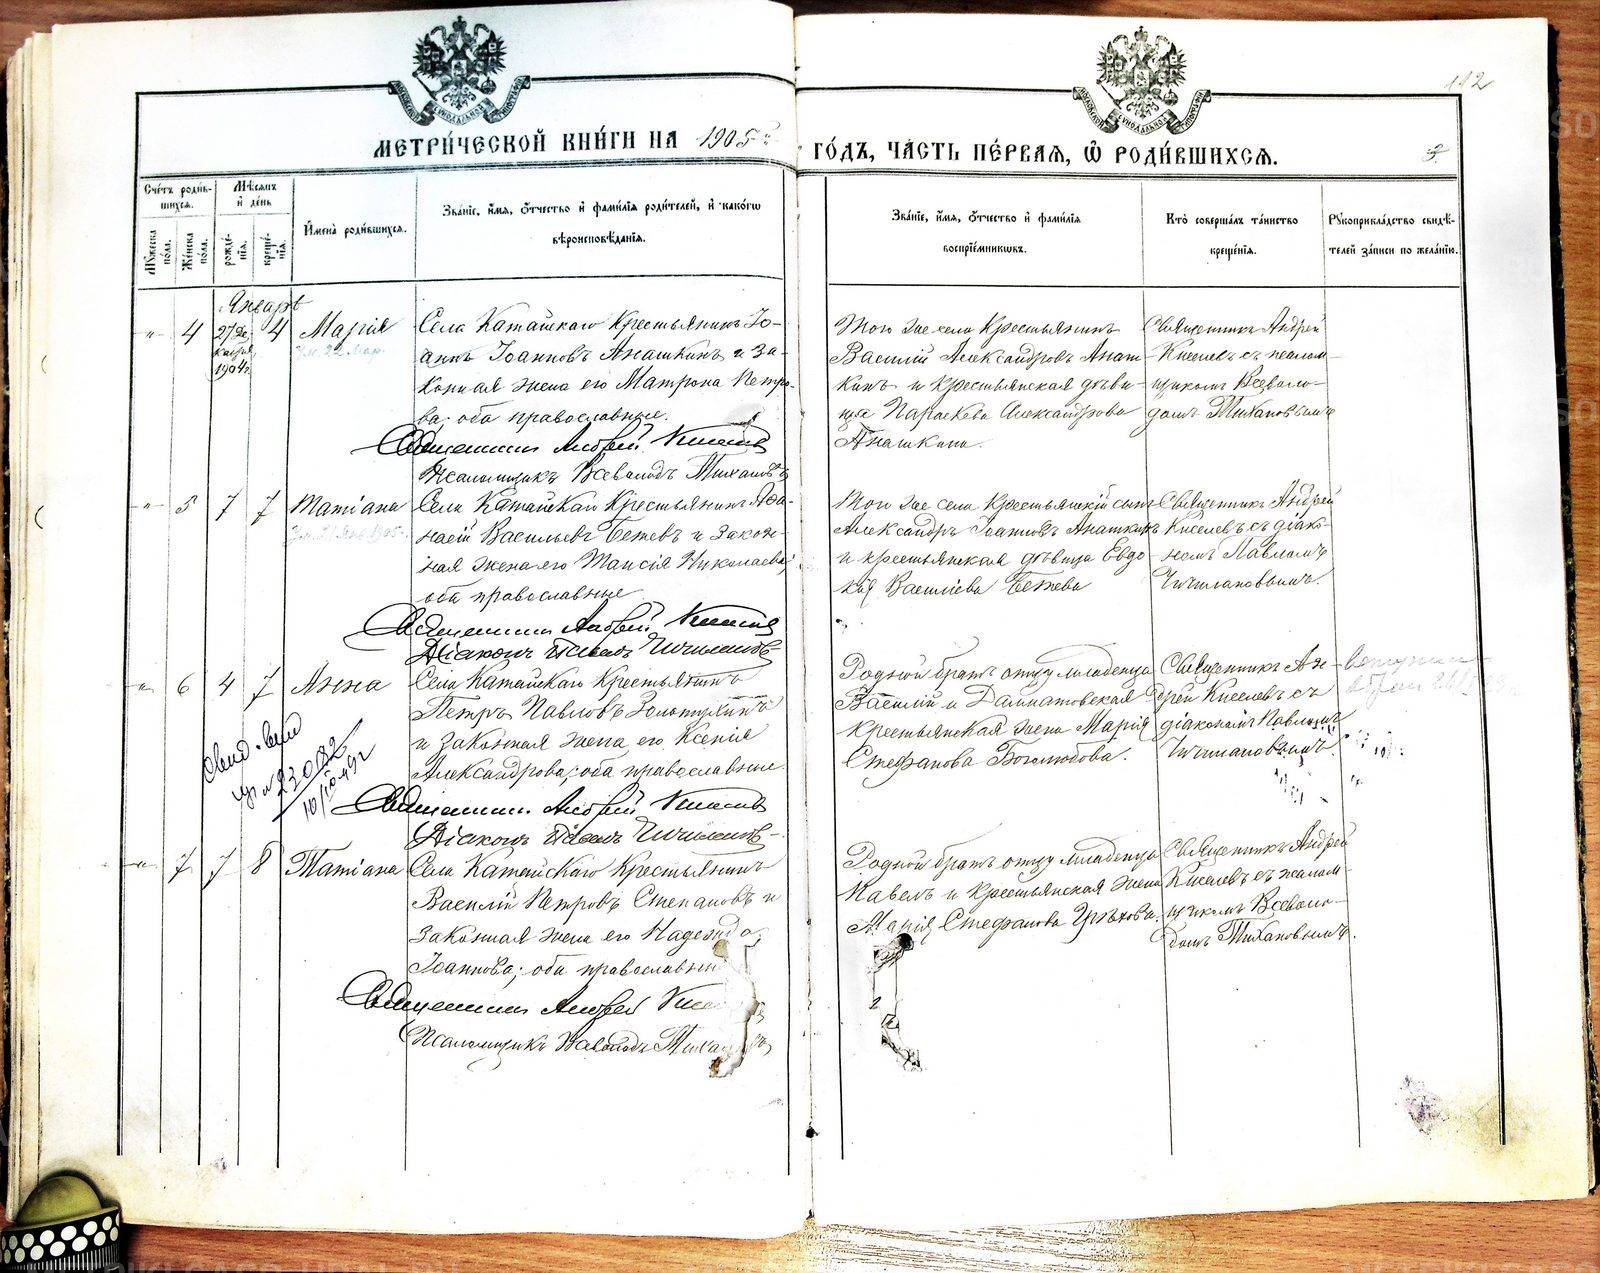 МЕТРИ́ЧЕСКОЙ КНИ́ГИ НА 1905й
ГО́ДЪ, ЧА́СТЬ ПЕ́РВАЯ, Ѡ РОДИ́ВШИХСѦ.
112
3
Сче́тъ роди́в-
шихсѧ.
Мꙋ́жеска по́ла.
Же́нска по́ла.
Мѣ́сѧцъ
и́ де́нь
рожде́нїѧ.
креще́нїѧ.
И́мена̀ роди́вшихсѧ.
Зва́нїе, и́мѧ, ѻ́тчество и́ фами́лїѧ роди́телей, и́ како́гѡ
вѣроисповѣ́данїѧ.
Зва́нїе, и́мѧ, ѻ́тчество и́ фами́лїѧ
воспрїе́мникѡвъ.
Кто̀ соверша́лъ та́инство
креще́нїѧ.
Рꙋкоприкла́дство свидѣ́-
телей за́писи по жела́нїю.
Январь
" 4 27 Де-
кабря
1904г. 4 Марія
Села Катайскаго Крестьянинъ Іо-
аннъ Іоанновъ Анашкинъ и за-
конная жена его Матрона Петро-
ва; оба православные.
Священникъ Андрей Киселевъ
Псаломщикъ Всеволодъ Тихановъ
Того же села Крестьянинъ
Василій Александровъ Анаш-
кинъ и крестьянская дѣви-
ца Параскева Александрова
Анашкина.
Священникъ Андрей
Киселевъ съ псалом-
щикомъ Всеволо-
домъ Тихановымъ
" 5 7 7 Татіана
Села Катайскаго Крестьянинъ Аѳа-
насій Васильевъ Бетевъ и закон-
ная жена его Таисія Николаева;
оба православные
Священникъ Андрей Киселевъ
Діаконъ Павелъ Чичилановъ
Того же села Крестьянскій сынъ
Александръ Іоанновъ Анашкинъ
и крестьянская дѣвица Евдо-
кія Василіева Бетева
Священникъ Андрей
Киселевъ съ діако-
номъ Павломъ
Чичилановымъ.
" 6 4 7 Анна
Села Катайскаго Крестьянинъ
Петръ Павловъ Золотухинъ
и законная жена его Ксенія
Александрова; оба православные
Священникъ Андрей Киселевъ
Діаконъ Павелъ Чичилановъ
№ 23082
10/IV-49г
Родной братъ отцу младенца
Василій и Далматовская
крестьянская жена Марія
Стефанова Боголюбова.
Священникъ Ан-
дрей Киселевъ съ
діакономъ Павломъ
Чичилановымъ
" 7 7 8 Татіана
Села Катайскаго Крестьянинъ
Василій Петровъ Степановъ и
законная жена его Надежда
Іоаннова; оба православны
Священникъ Андрей
Псаломщикъ Всеволодъ
Родной братъ отцу младенца
Павелъ и крестьянская жена
Марія Стефанова
Священникъ Андрей
Киселевъ съ псалом-
щикомъ Всеволо-
домъ Тихановымъ.